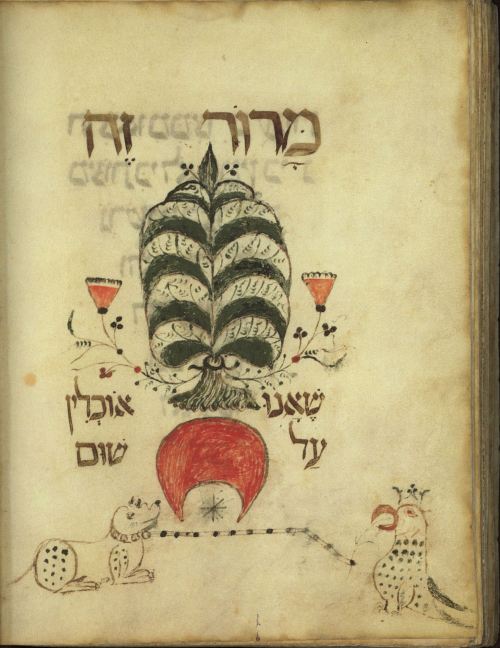 מָרוֹר זֶה
שֶׁאָנוּ אוֹכְלִין
עַל שׁוּם